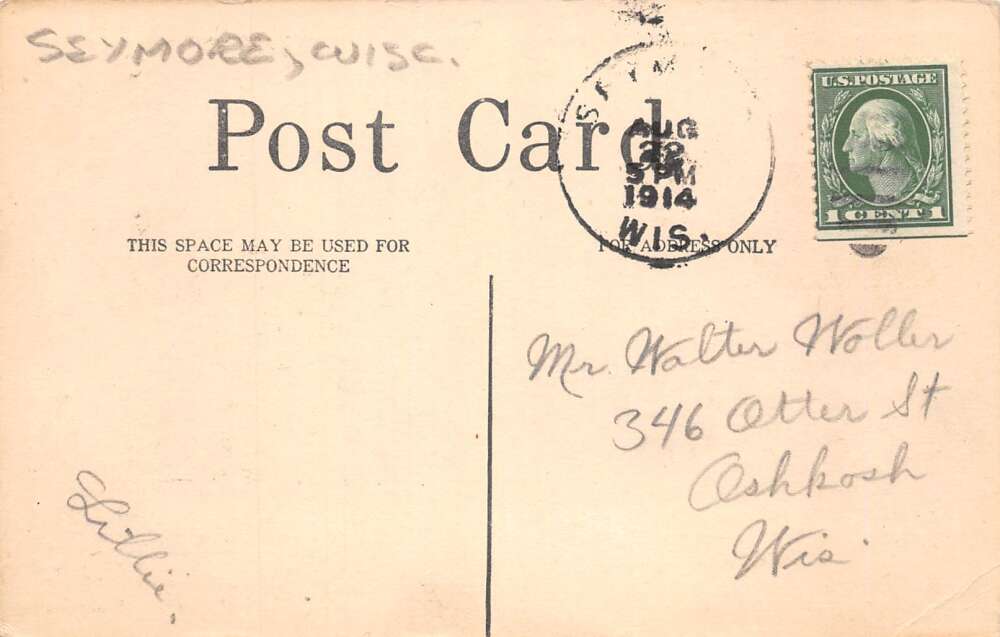 SEYMORE, WISC.
Post Card
AUG
22
5 PM
1914
WIS.
U.S. POSTAGE
1 CENT 1
THIS SPACE MAY BE USED FOR
CORRESPONDENCE
FOR ADDRESS ONLY
Mr. Walter Woller
346 Otter St
Oshkosh
Wis.
Lillie.